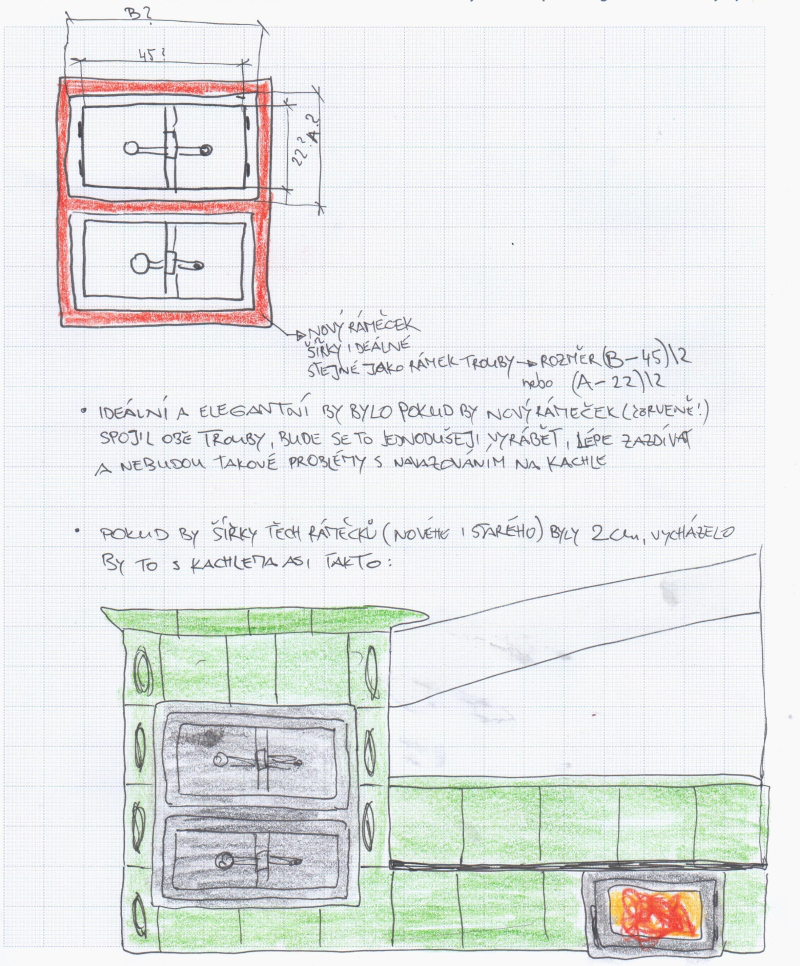 B?
45?
22?
A?
NOVÝ RÁMEČEK
ŠÍŘKY IDEÁLNĚ
STEJNÉ JAKO RÁMEK TROUBY → ROZMĚR (B-45)\2
nebo (A-22)\2
• IDEÁLNÍ A ELEGANTNÍ BY BYLO POKUD BY NOVÝ RÁMEČEK (ČERVENĚ!)
SPOJIL OBĚ TROUBY, BUDE SE TO JEDNODUŠEJI VYRÁBĚT, LÉPE ZAZDÍVAT
A NEBUDOU TAKOVÉ PROBLÉMY S NAVAZOVÁNÍM NA KACHLE
• POKUD BY ŠÍŘKY TĚCH RÁMEČKŮ (NOVÉHO I STARÉHO) BYLY 2cm, VYCHÁZELO
BY TO S KACHLEMA ASI TAKTO: